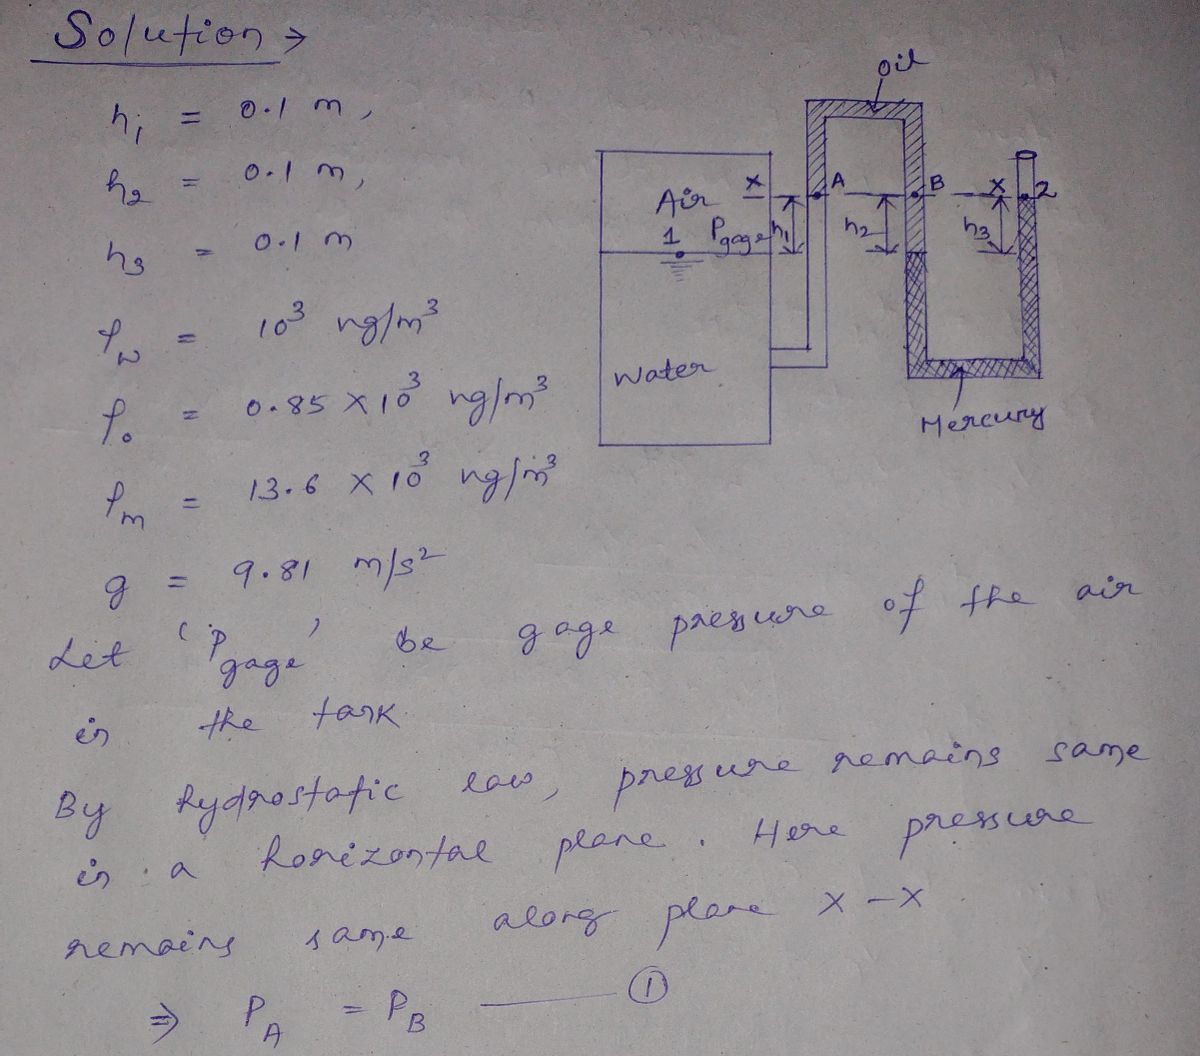 Solution →
h₁ = 0.1 m,
h₂ = 0.1 m,
h₃ = 0.1 m
ρw = 10³ kg/m³
ρo = 0.85 × 10³ kg/m³
ρm = 13.6 × 10³ kg/m³
g = 9.81 m/s²
Oil
Air
X
A
B
X
2
1
Pgage
h₁
h₂
h₃
Water
Mercury
Let 'Pgage' be gage pressure of the air
in the tank
By hydrostatic law, pressure remains same
in a horizontal plane. Here pressure
remains same along plane X-X
⇒ PA = PB ——— ①